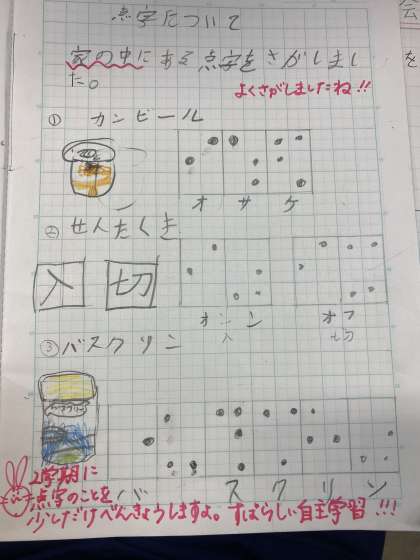 点字について
家の中にある点字をさがしまし
た。
よくさがしましたね!!
① カンビール
オ サ ケ
② せんたくき
入 切
オン オフ
入 切
③ バスクリン
バ ス ク リ ン
2学期に
点字のことを
少しだけべんきょうしますよ。すばらしい自主学習!!!